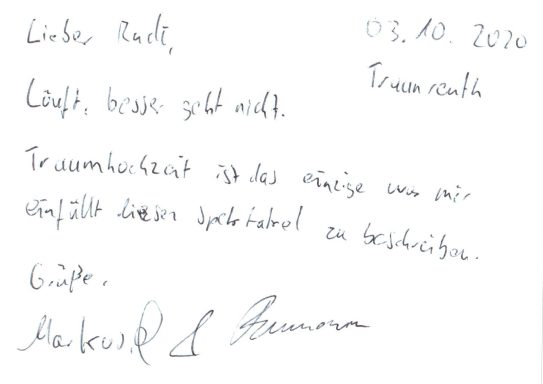 Lieber Rudi,
03.10.2020
Traunreuth
Läuft, besser geht nicht.
Traumhochzeit ist das einzige was mir
einfällt dieses spektakel zu beschreiben.
Grüße,
Markus